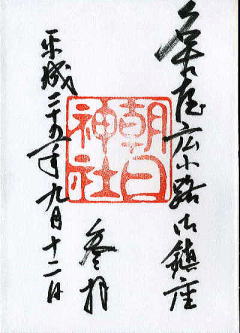 名古屋広小路御鎮座
朝日神社
参拝
平成二十五年九月十二日